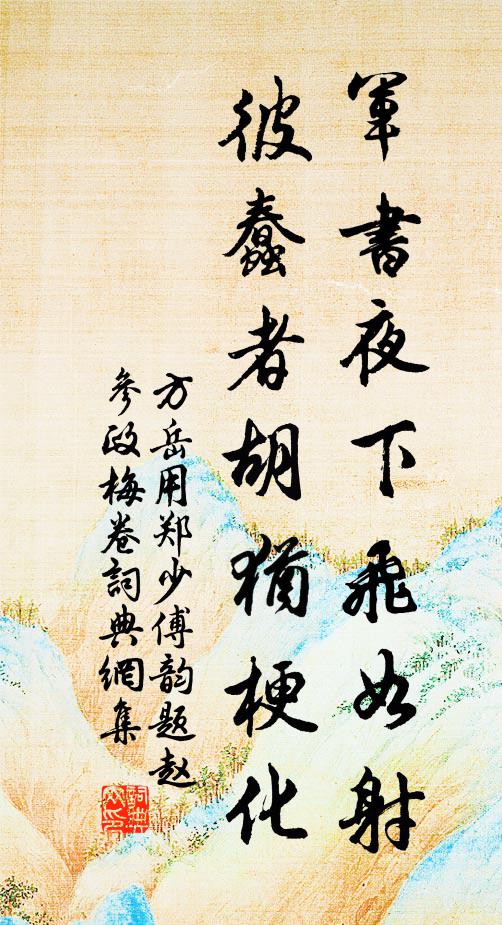 軍書夜下飛如射
彼蠢者胡猶梗化
方岳用郑少傅韵题赵
参政梅卷詞典網集